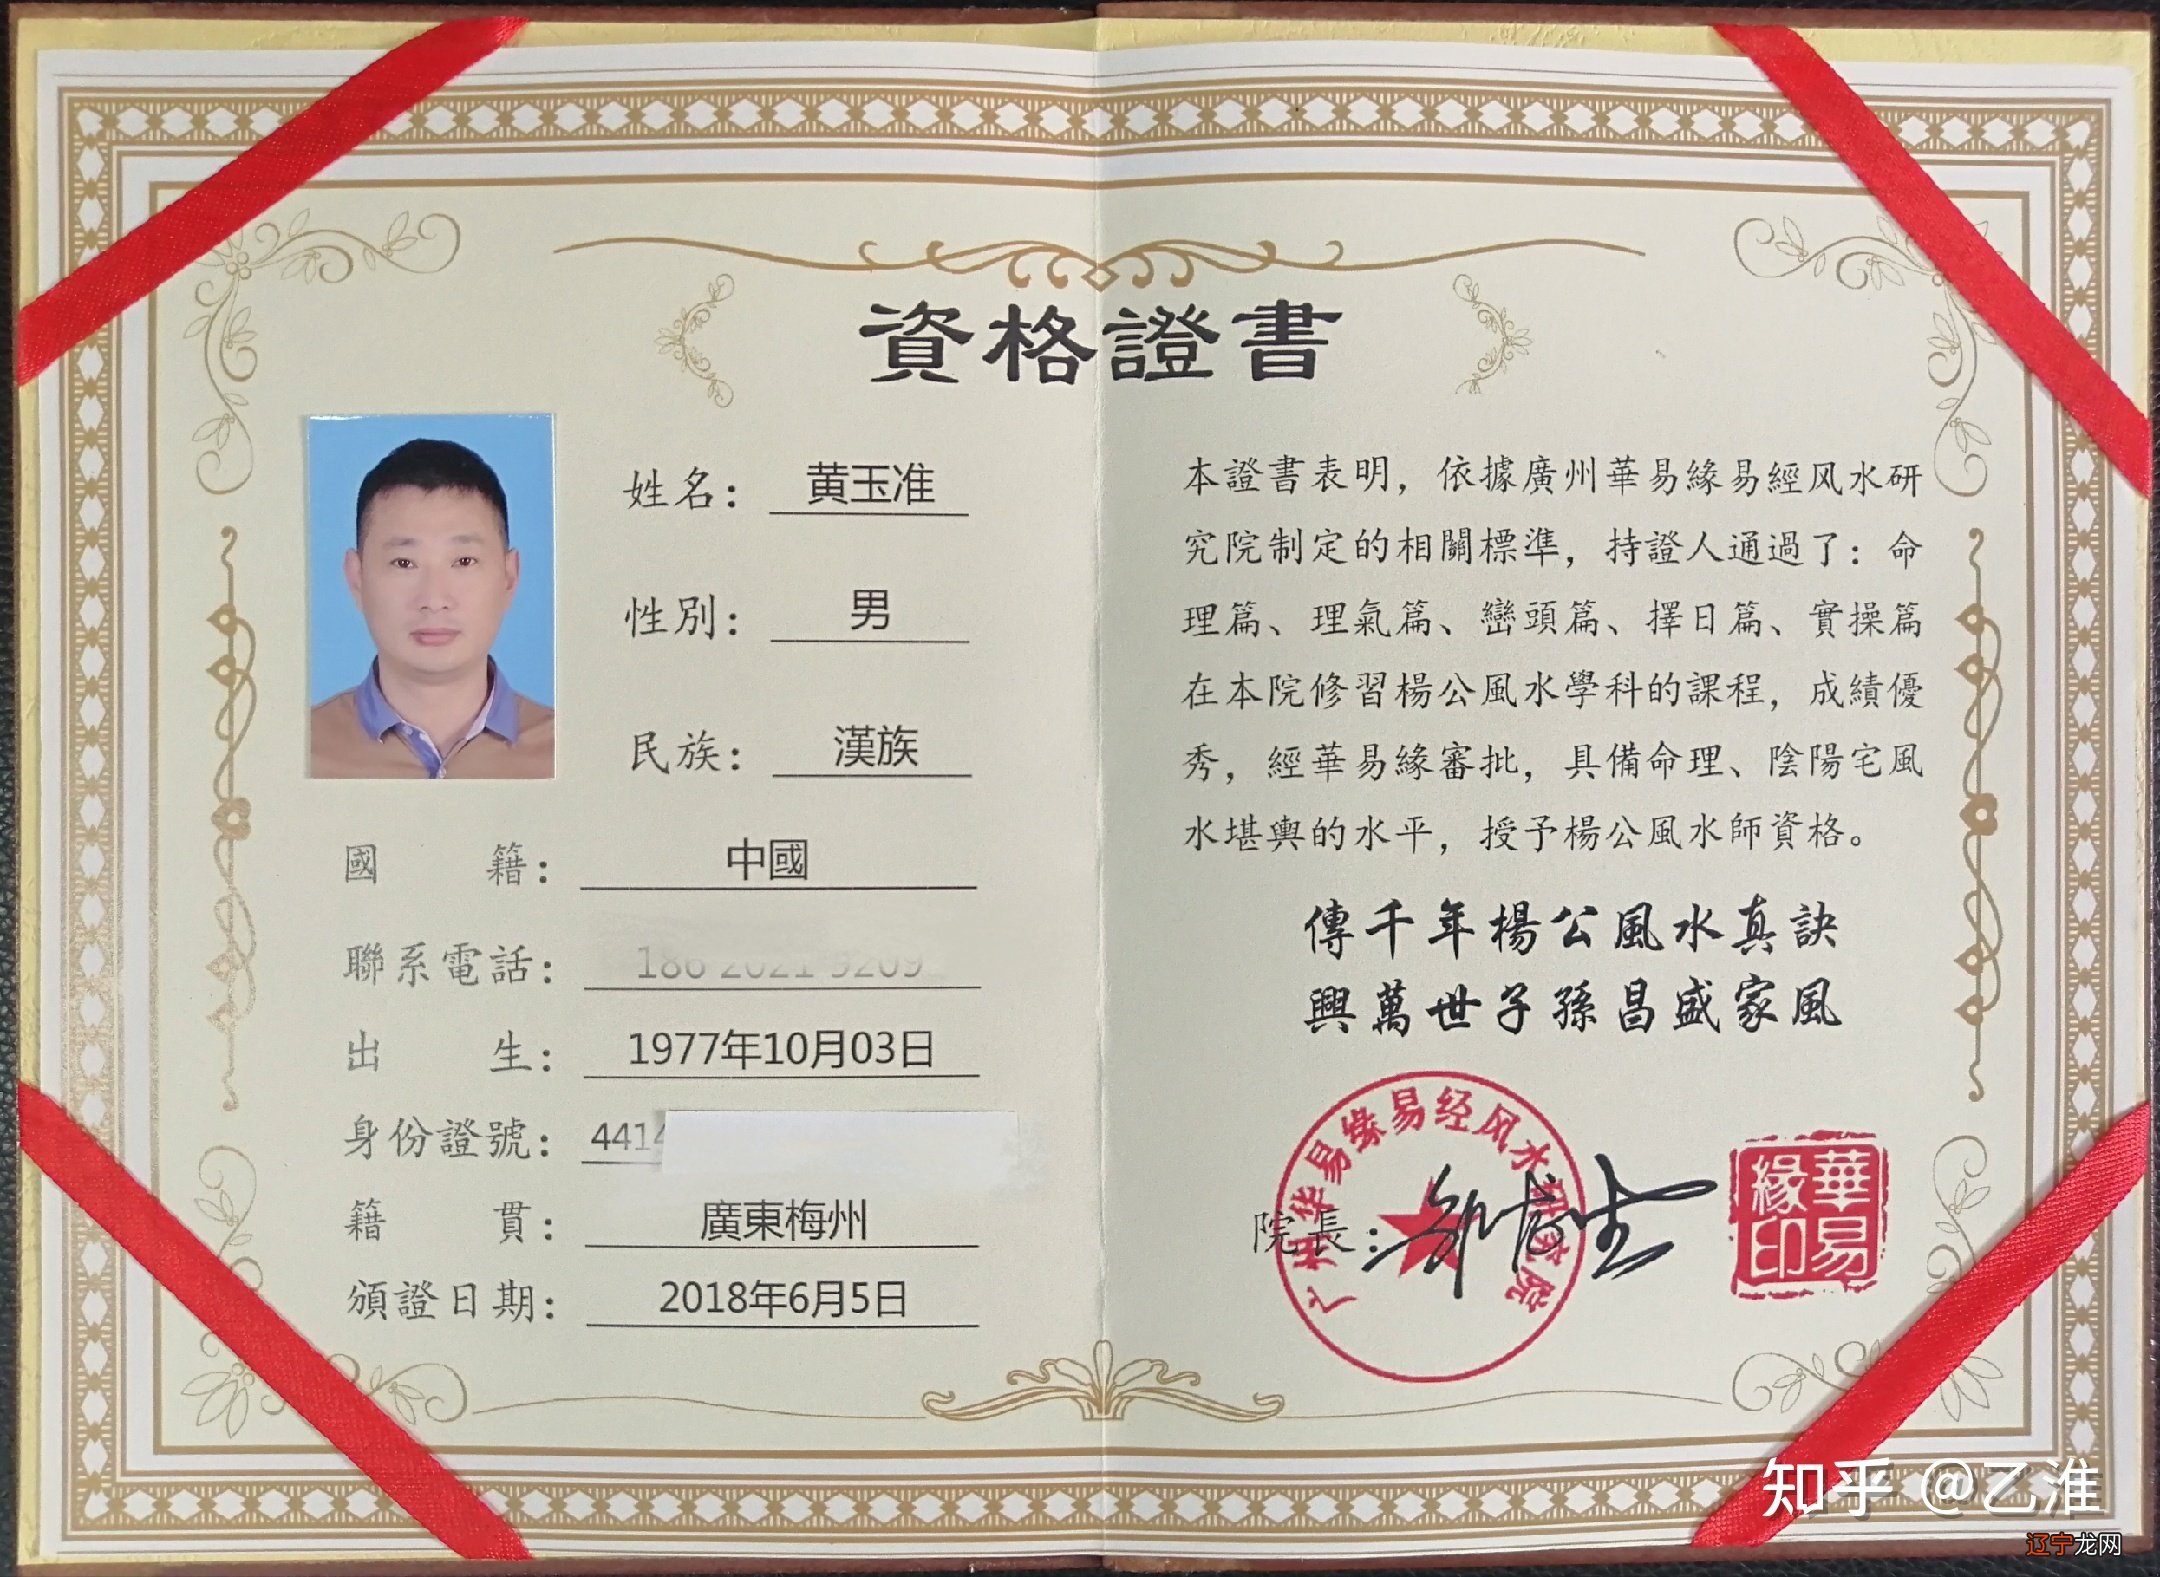 資格證書
姓名： 黄玉准
性別： 男
民族： 漢族
國籍： 中國
聯系電話：
出生： 1977年10月03日
身份證號： 441
籍貫： 廣東梅州
頒證日期： 2018年6月5日
本證書表明，依據廣州華易緣易經风水研
究院制定的相關標準，持證人通過了：命
理篇、理氣篇、巒頭篇、擇日篇、實操篇
在本院修習楊公風水學科的課程，成績優
秀，經華易緣審批，具備命理、陰陽宅風
水堪輿的水平，授予楊公風水師資格。
傳千年楊公風水真訣
興萬世子孫昌盛家風
广州华易缘易经风水研究院
院長：
華易緣印
知乎 @乙淮
辽宁龙网